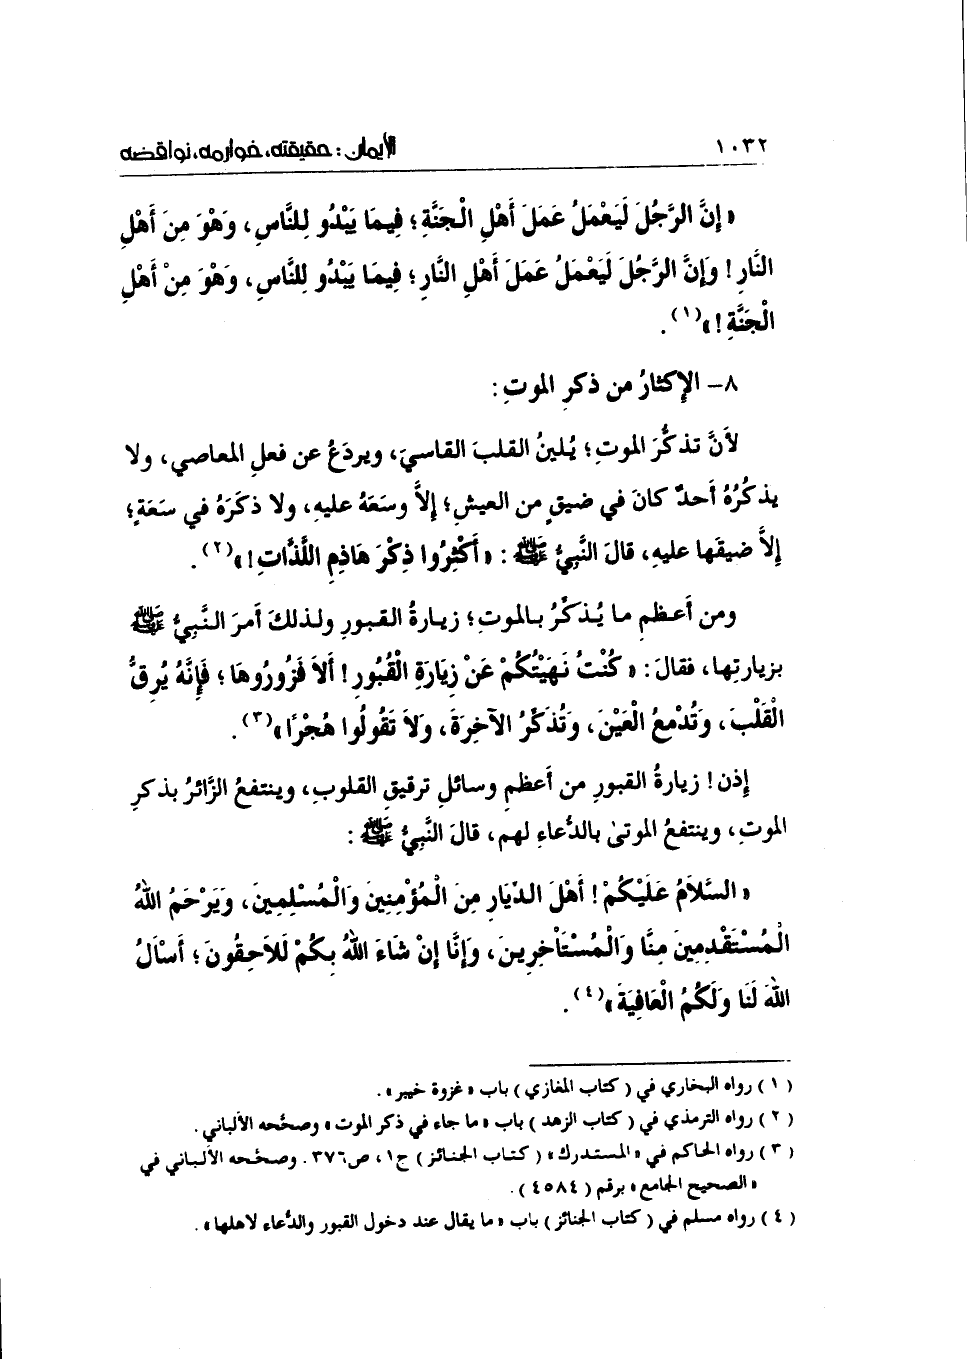 ١٠٣٢
الإيمان : حقيقته، خوارمه، نواقضه
« إِنَّ الرَّجُلَ لَيَعْمَلُ عَمَلَ أَهْلِ الْجَنَّةِ ؛ فِيمَا يَبْدُو لِلنَّاسِ ، وَهْوَ مِنَ أَهْلِ
النَّارِ ! وَإِنَّ الرَّجُلَ لَيَعْمَلُ عَمَلَ أَهْلِ النَّارِ ؛ فِيمَا يَبْدُو لِلنَّاسِ ، وَهْوَ مِنْ أَهْلِ
الْجَنَّةِ ! »(١) .
٨- الإكثارُ من ذكرِ الموتِ :
لأنَّ تذكُّرَ الموتِ ؛ يُلينُ القلبَ القاسيَ ، ويردَعُ عن فعلِ المعاصي ، ولا
يذكُرُهُ أحدٌ كانَ في ضيقٍ من العيشِ ؛ إلاَّ وسَعَهُ عليهِ ، ولا ذكَرَهُ في سَعَةٍ ؛
إلاَّ ضيقَها عليهِ ، قالَ النَّبِيُّ ﷺ : « أَكْثِرُوا ذِكْرَ هَاذِمِ اللَّذَّاتِ ! »(٢) .
ومن أعظمِ ما يُذكِّرُ بالموتِ ؛ زيارةُ القبورِ ولذلكَ أمرَ النَّبِيُّ ﷺ
بزيارتِها ، فقالَ : « كُنْتُ نَهَيْتُكُمْ عَنْ زِيَارَةِ الْقُبُورِ ! أَلاَ فَزُورُوهَا ؛ فَإِنَّهُ يُرِقُّ
الْقَلْبَ ، وَتُدْمِعُ الْعَيْنَ ، وَتُذَكِّرُ الآخِرَةَ ، وَلاَ تَقُولُوا هُجْرًا »(٣) .
إذن ! زيارةُ القبورِ من أعظمِ وسائلِ ترقيقِ القلوبِ ، وينتفعُ الزَّائرُ بذكرِ
الموتِ ، وينتفعُ الموتىٰ بالدُّعاءِ لهم ، قالَ النَّبِيُّ ﷺ :
« السَّلاَمُ عَلَيْكُمْ ! أَهْلَ الدِّيَارِ مِنَ الْمُؤْمِنِينَ وَالْمُسْلِمِينَ ، وَيَرْحَمُ اللهُ
الْمُسْتَقْدِمِينَ مِنَّا وَالْمُسْتَأْخِرِينَ ، وَإِنَّا إِنْ شَاءَ اللهُ بِكُمْ لَلاَحِقُونَ ؛ أَسْأَلُ
اللهَ لَنَا وَلَكُمُ الْعَافِيَةَ »(٤) .
( ١ ) رواه البخاري في ( كتاب المغازي ) باب « غزوة خيبر » .
( ٢ ) رواه الترمذي في ( كتاب الزهد ) باب « ما جاء في ذكر الموت » وصحَّحه الألباني .
( ٣ ) رواه الحاكم في « المستدرك » ( كتاب الجنائز ) ج١ ، ص٣٧٦ . وصحَّحه الألباني في
« الصحيح الجامع » برقم ( ٤٥٨٤ ) .
( ٤ ) رواه مسلم في ( كتاب الجنائز ) باب « ما يقال عند دخول القبور والدُّعاء لاهلها » .